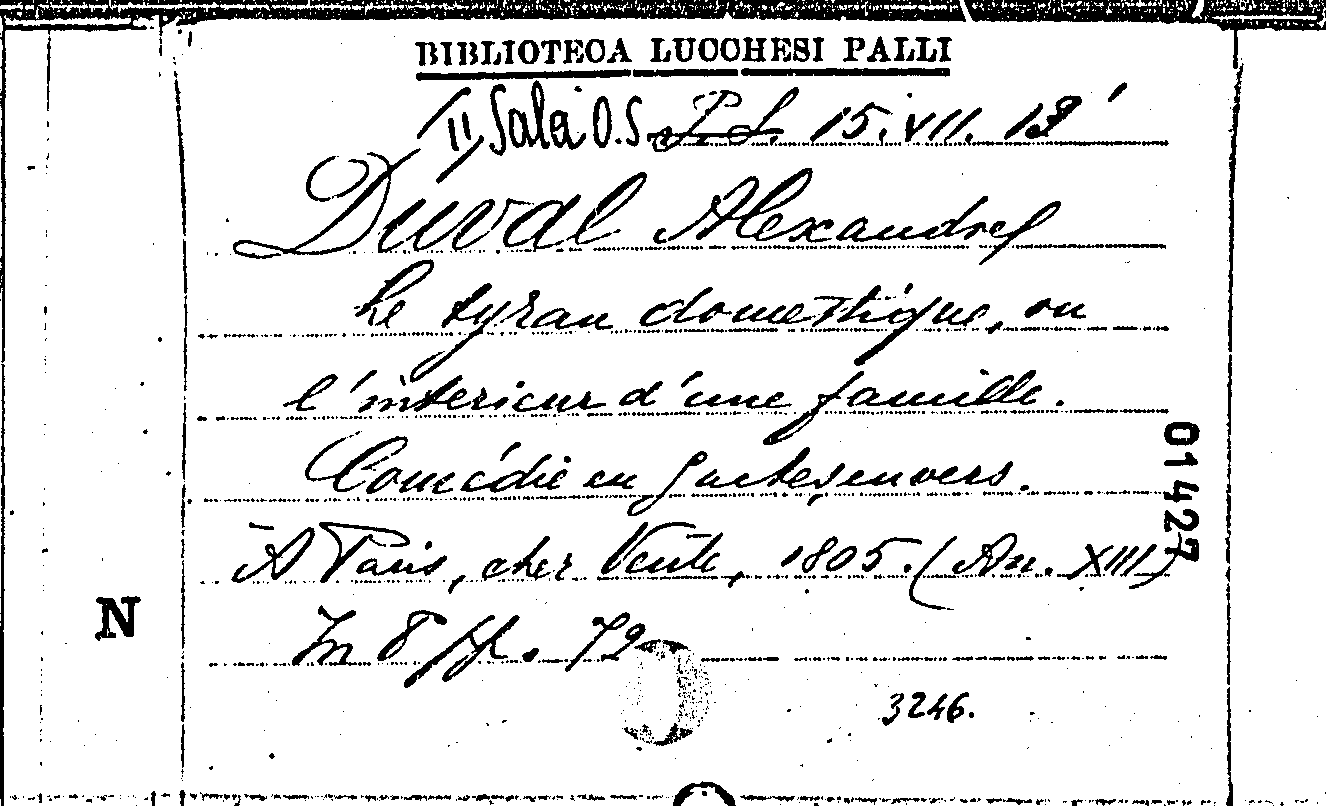 BIBLIOTECA LUCCHESI PALLI
II Sala O.S. P.S. 15.VII.12'
Duval Alexandre
Le tyran domestique, ou
l'interieur d'une famille.
Comédie en 5 actes, en vers.
À Paris, chez Vente, 1805. (An. XIII)
In 8 pp. 72
3246.
01427
N